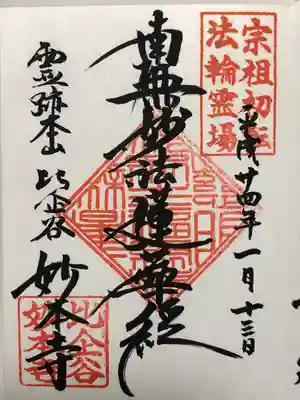 宗祖初転
法輪霊場
平成廿四年一月十三日
南無妙法蓮華経
霊跡本山 比企谷 妙本寺
比企谷
妙本寺